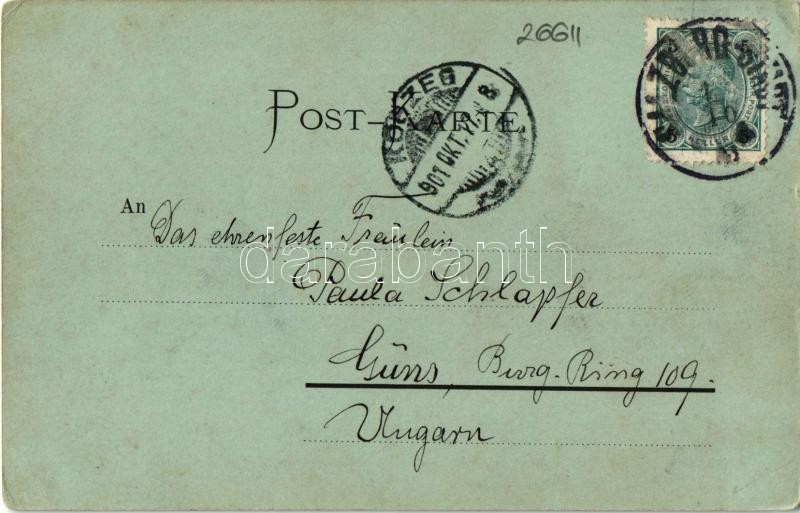 26611
POST-KARTE.
KŐSZEG
901 OKT.
An Das ehrenfeste Fräulein
darabanth
Paula Schlapfer
Güns, Burg-Ring 109.
Ungarn